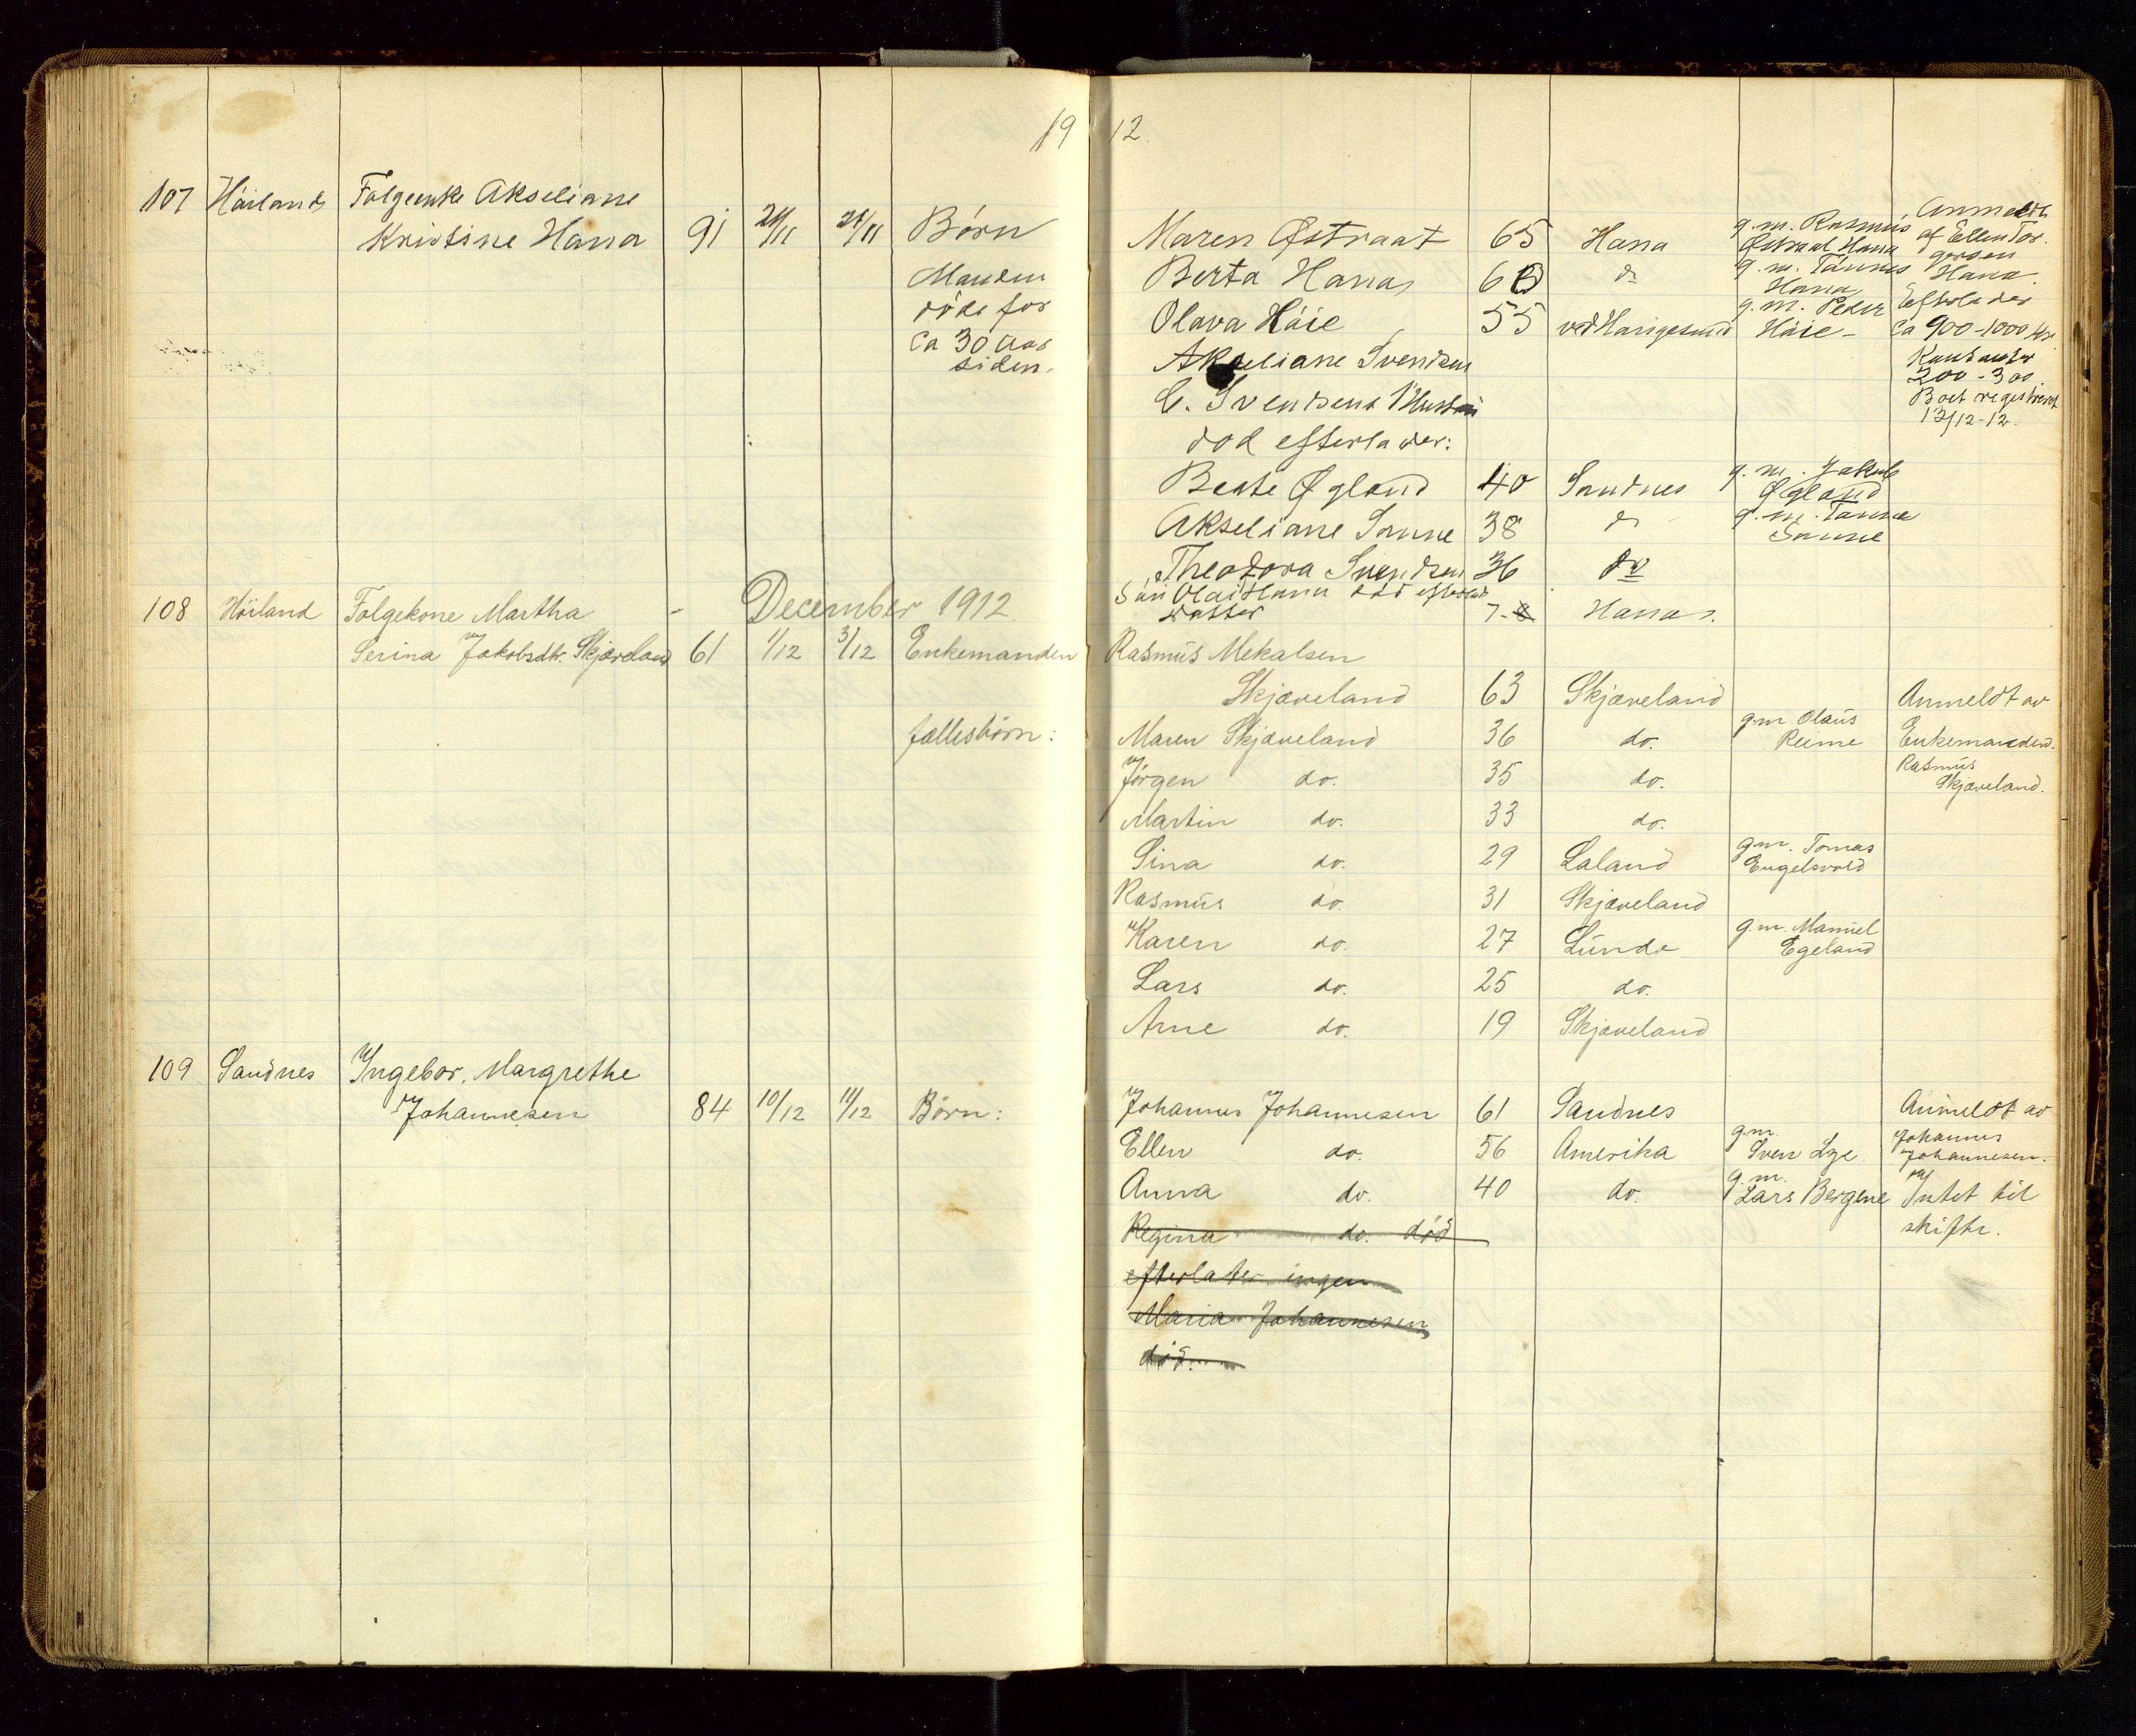 19 12.
107 Høiland Folgeenke Akseliane
Kristine Hana 91 /11 /11 Børn
Manden
døde for
ca 30 aar
siden.
Maren Østraat 65 Hana g.m. Rasmus Østraat Hana
Berta Hana 60 do g.m. Tønnes Hana
Olava Høie 55 ved Haugesund g.m. Peder Høie
Akseliane Svendsen
C. Svendsens Hustru
død efterlader:
Beate Øgland 40 Sandnes g.m. Jakob Øgland
Akseliane Sanne 38 do g.m. Sanne
Theodora Svendsen 36 do
Søn Olai Hana død efterlad
datter 7 Hana.
Anmeldt
af Ellen Tor-
gersen
Hana
Efterlader
ca 900-1000 kr.
200-300.
Boet registreret
13/12-12.
December 1912.
108 Høiland Folgekone Martha
Serina Jakobsdtr. Skjæveland 61 1/12 3/12 Enkemanden Rasmus Mekalsen
Skjæveland 63 Skjæveland Anmeldt av
fællesbørn: Maren Skjæveland 36 do. g.m Olaus Reime Enkemanden.
Jørgen do. 35 do. Rasmus
Skjæveland.
Martin do. 33 do.
Sina do. 29 Laland g.m. Tomas Engelsvold
Rasmus do. 31 Skjæveland
Karen do. 27 Lunde g.m. Manuel Egeland
Lars do. 25 do.
Arne do. 19 Skjæveland
109 Sandnes Ingebor. Margrethe
Johannesen 84 10/12 11/12 Børn: Johannes Johannesen 61 Sandnes Anmeldt av
Ellen do. 56 Amerika g.m. Sven Lye Johannes
Johannesen.
Anna do. 40 do. g.m. Lars Bergene Intet til
skifte.
Regina do. død
efterlater ingen
Maria Johannesen
død.